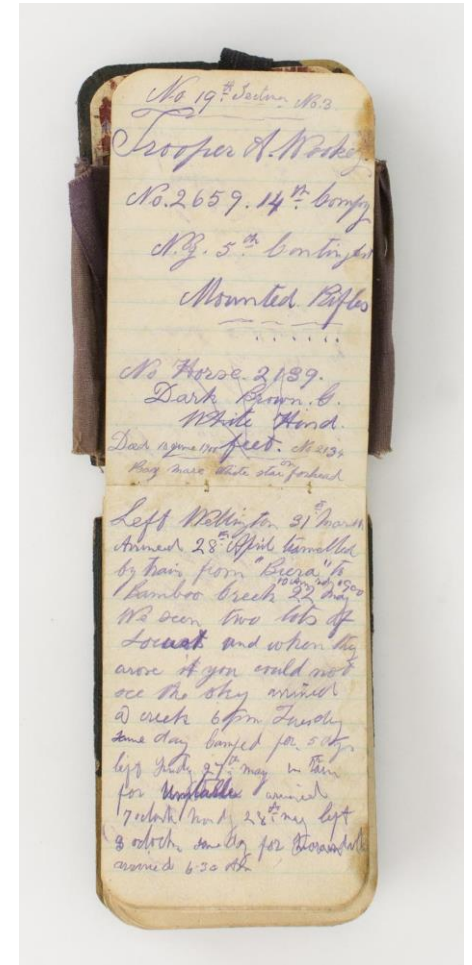 No 19th Section No.3
Trooper A. Wookey
No. 2659. 14th Compy
N.Z. 5th Contingent
Mounted Rifles
No Horse. 2139.
Dark Brown. G.
White Hind
Dead 13 June 1900 feet. No 2134
Bay mare white star on forhead
Left Wellington 31st March
Arrived 28th April travelled
by train from "Biera" to
10 AM 1900
Bamboo Creek 22nd May
We seen two lots of
Locust and when they
arose it you could not
see the sky arrived
@ creek 6pm Tuesdy
same day camped for 5 dys
left Sundy 27th may in train
for arrived
7 oclock Mondy 28th may left
8 oclock same day for
arrived 6-30